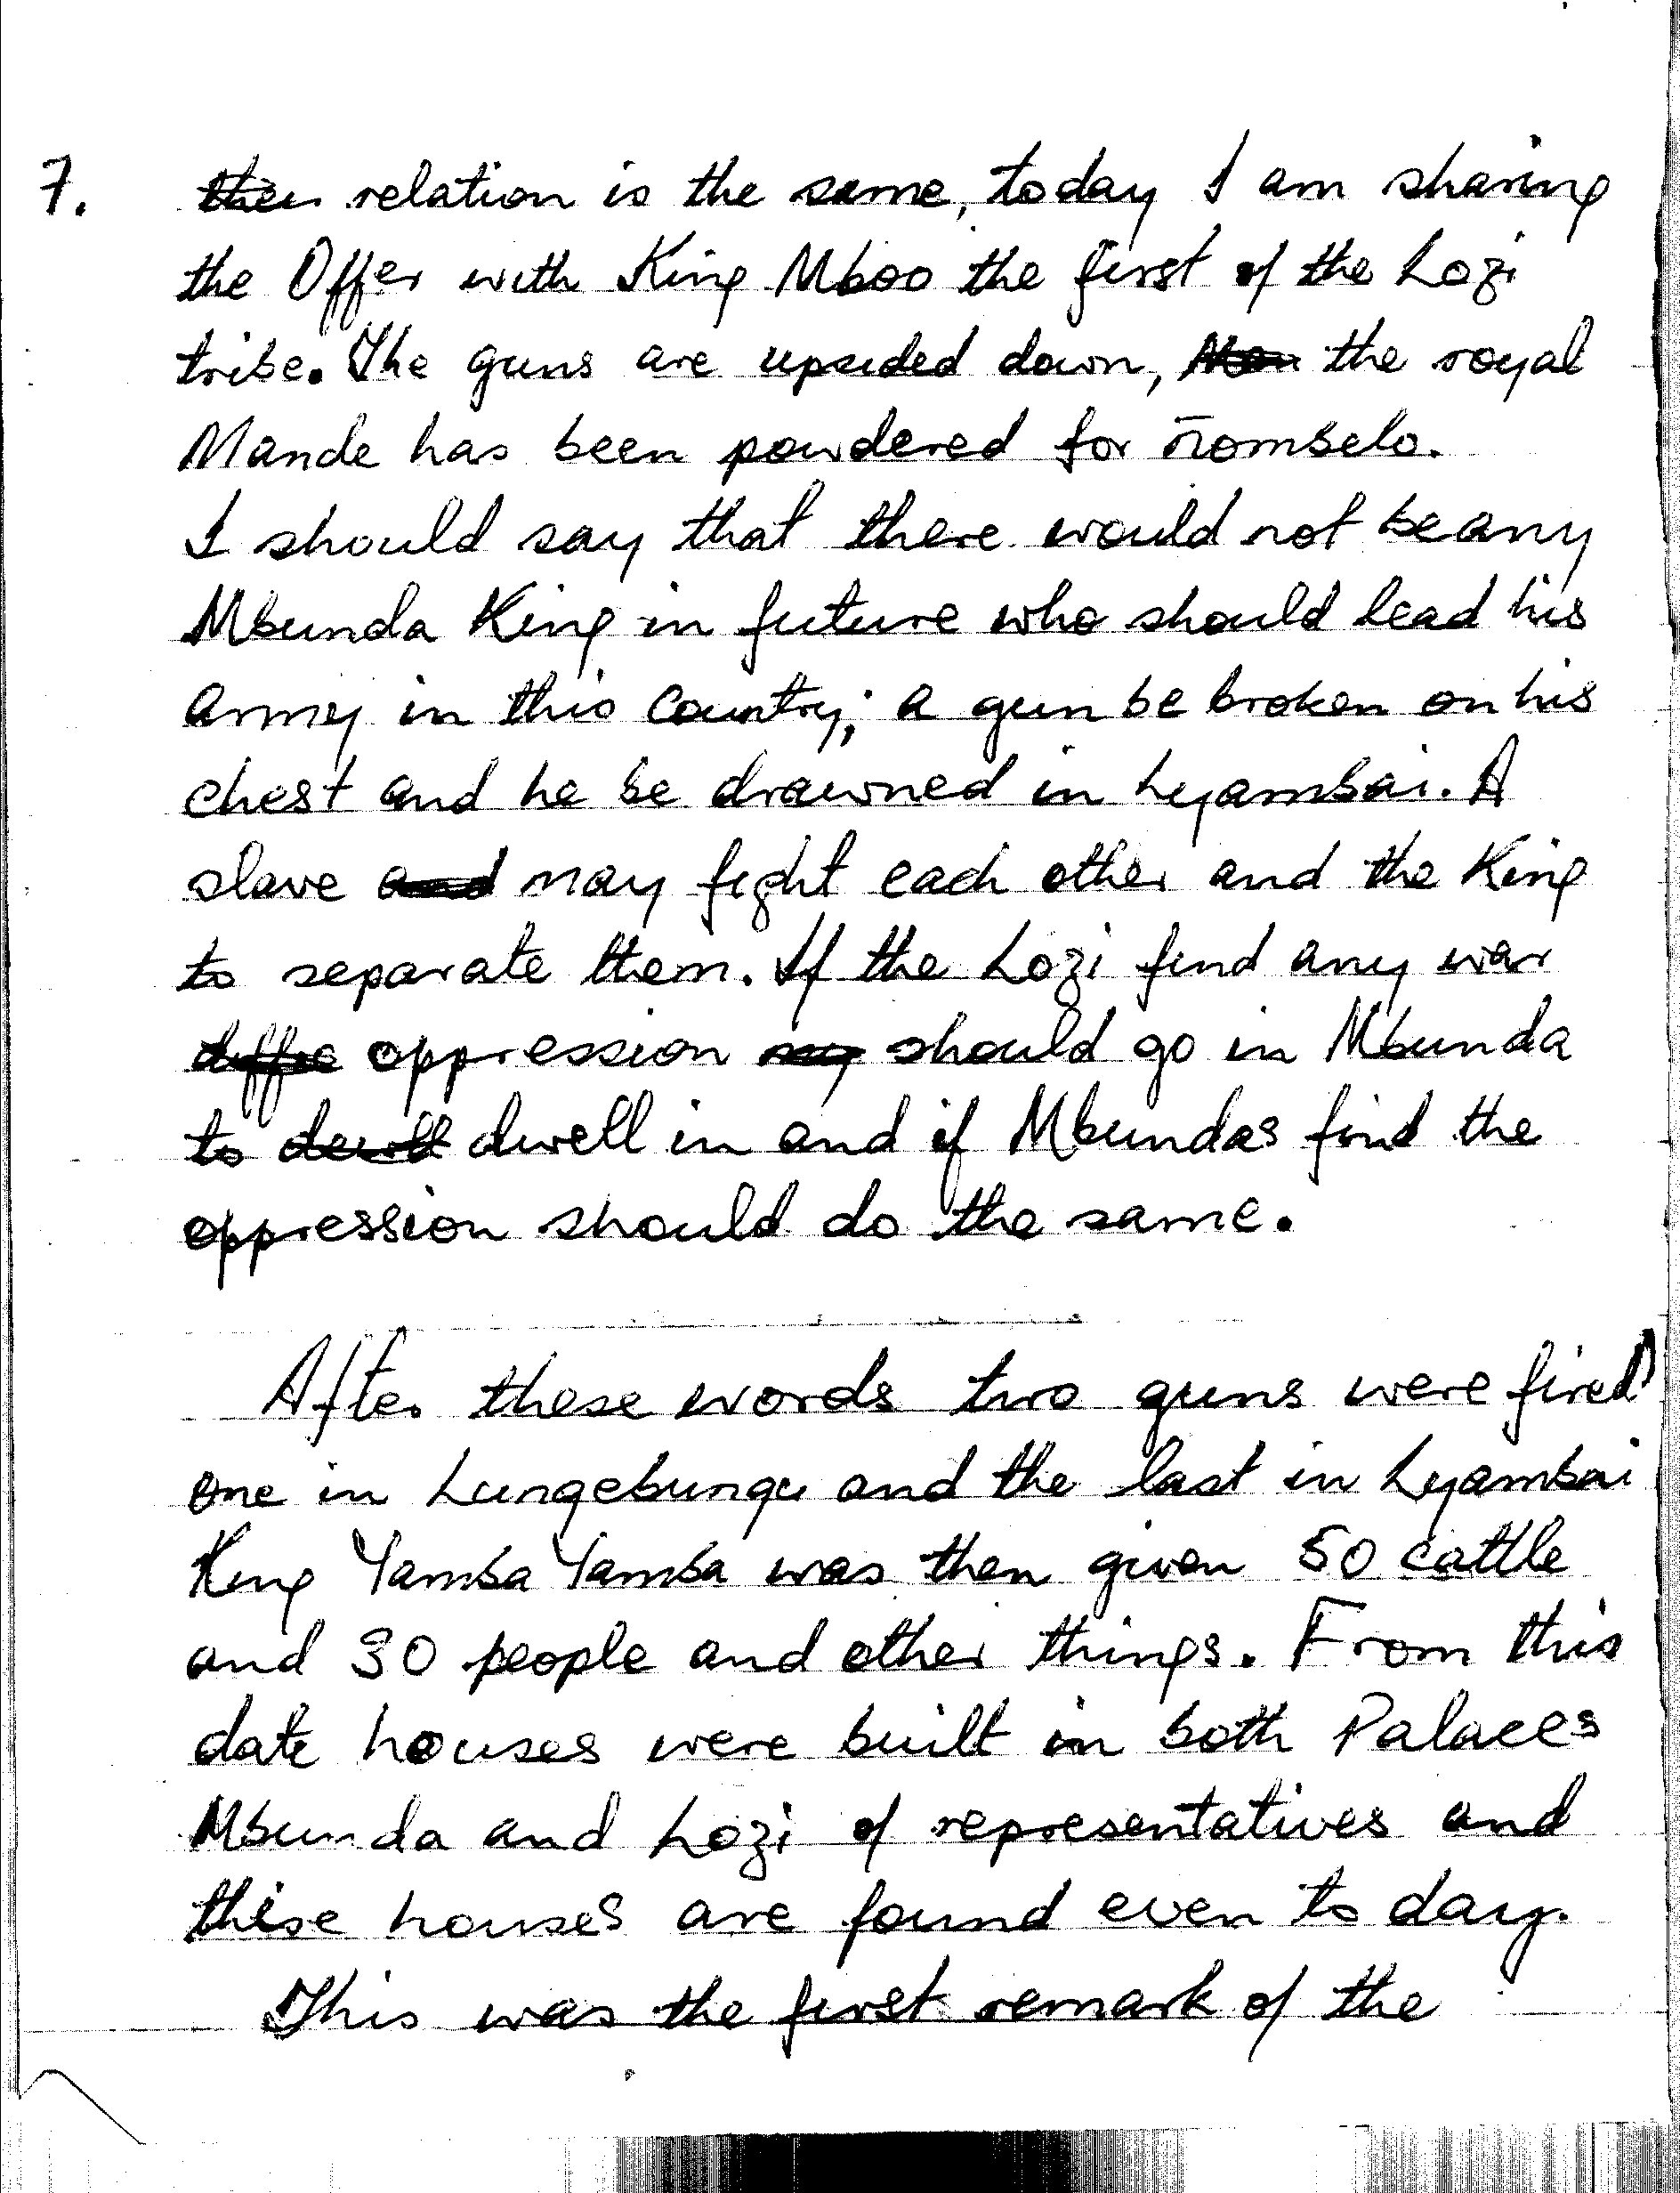 7. relation is the same, today I am sharing
the Offer with King Mboo the first of the Lozi
tribe. The guns are upsided down, the royal
Mande has been powdered for ñombelo.
I should say that there would not be any
Mbunda King in future who should lead his
army in this country; a gun be broken on his
chest and he be drawned in Lyambai. A
slave may fight each other and the King
to separate them. If the Lozi find any war
oppression should go in Mbunda
to dwell in and if Mbundas find the
oppression should do the same.
After these words two guns were fired
one in Lungebungu and the last in Lyambai
King Yamba Yamba was then given 50 cattle
and 30 people and other things. From this
date houses were built in both Palaces
Mbunda and Lozi of representatives and
these houses are found even to day.
This was the first remark of the